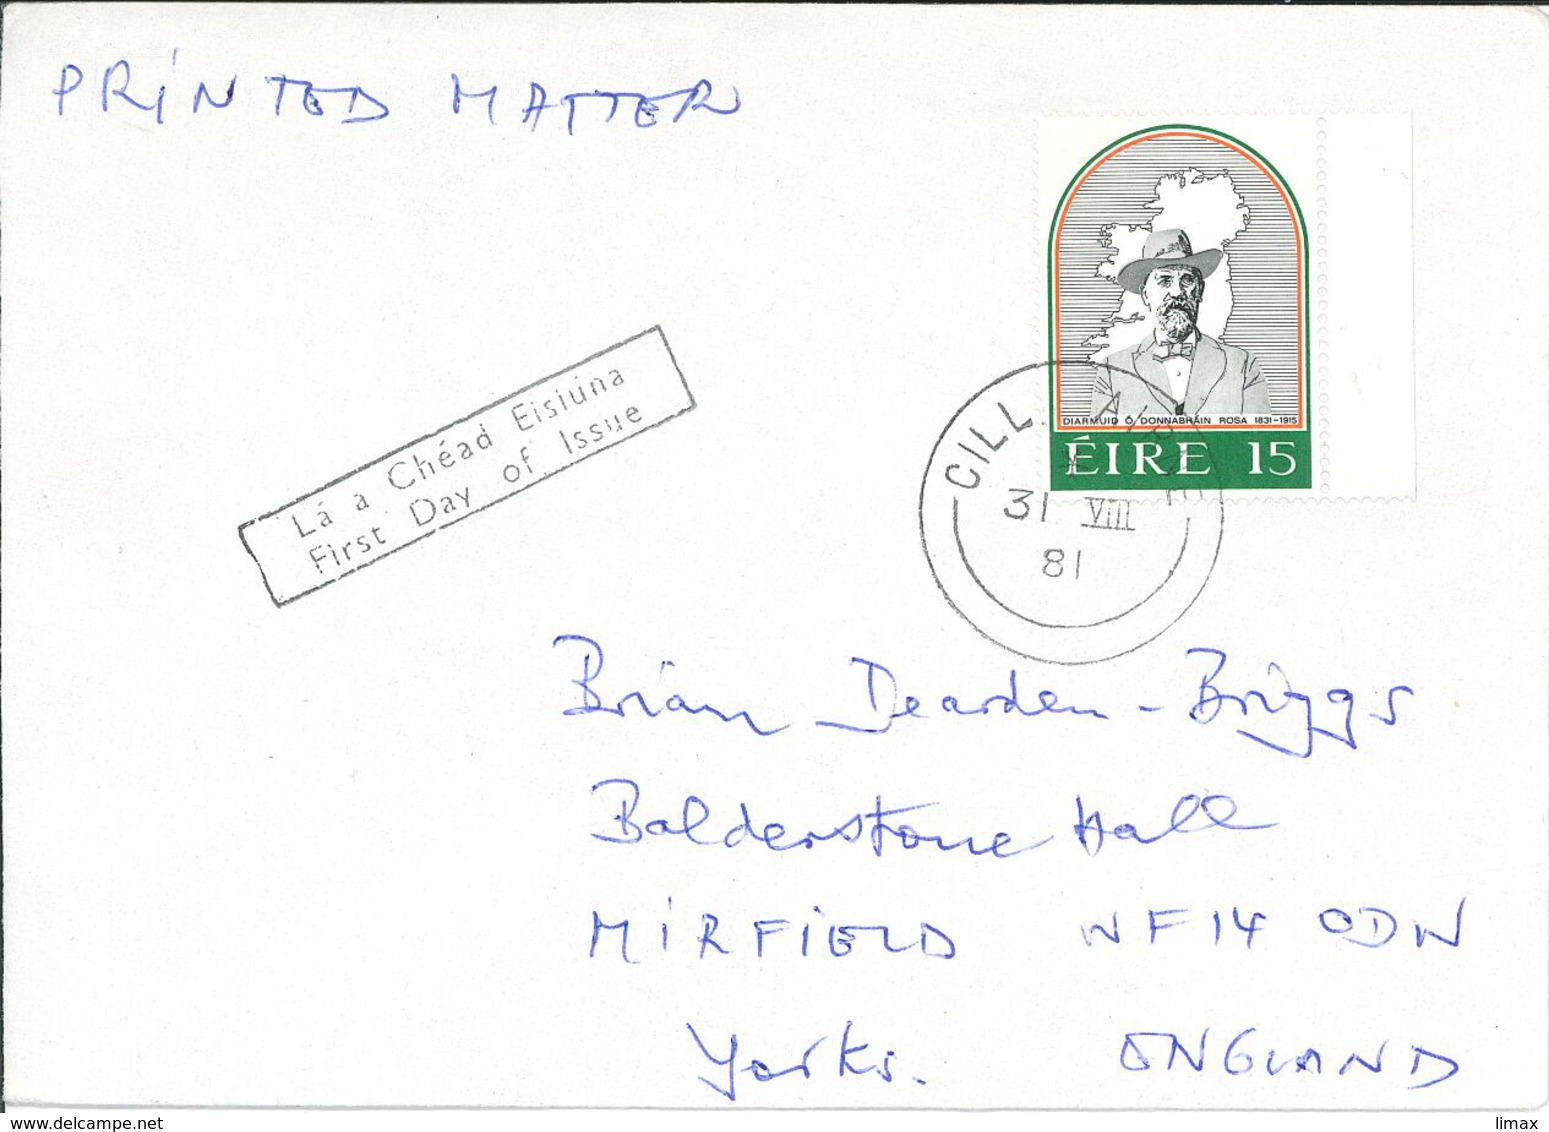 PRINTED MATTER
DIARMUID Ó DONNABHÁIN ROSA 1831-1915
ÉIRE 15
CILL
31 VIII
81
Lá a Chéad Eisiúna
First Day of Issue
Brian Dearden-Briggs
Balderstone Hall
MIRFIELD WF14 ODN
Yorks. ENGLAND
www.delcampe.net
limax